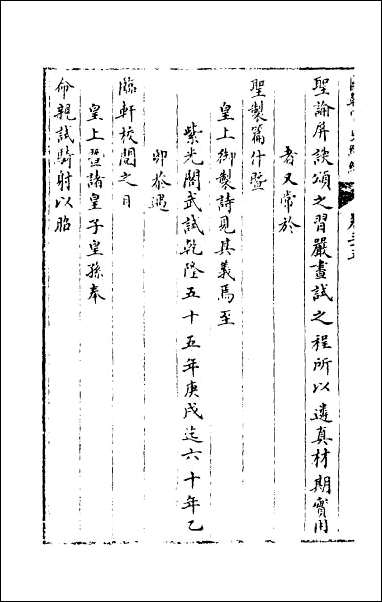 聖諭屏諛頌之習嚴盡試之程所以遴真材期實用
者又常於
聖製篇什暨
皇上御製詩見其義焉至
紫光閣武試乾隆五十五年庚戌迄六十年乙
卯於遇
臨軒校閱之日
皇上暨諸皇子皇孫奉
命親試騎射以昭